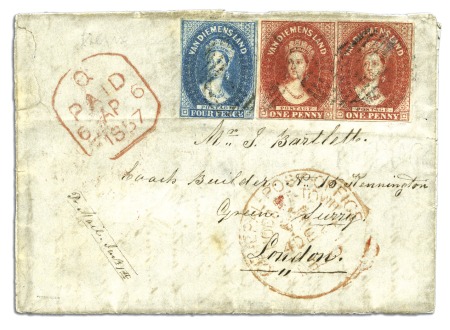 VAN DIEMENS LAND
POSTAGE
FOUR PENCE
VAN DIEMENS LAND
POSTAGE
ONE PENNY
VAN DIEMENS LAND
POSTAGE
ONE PENNY
Q
PAID
6 AP 6
1857
Mr. J. Bartlett
Coach Builder, Kennington
Green Surry
London.